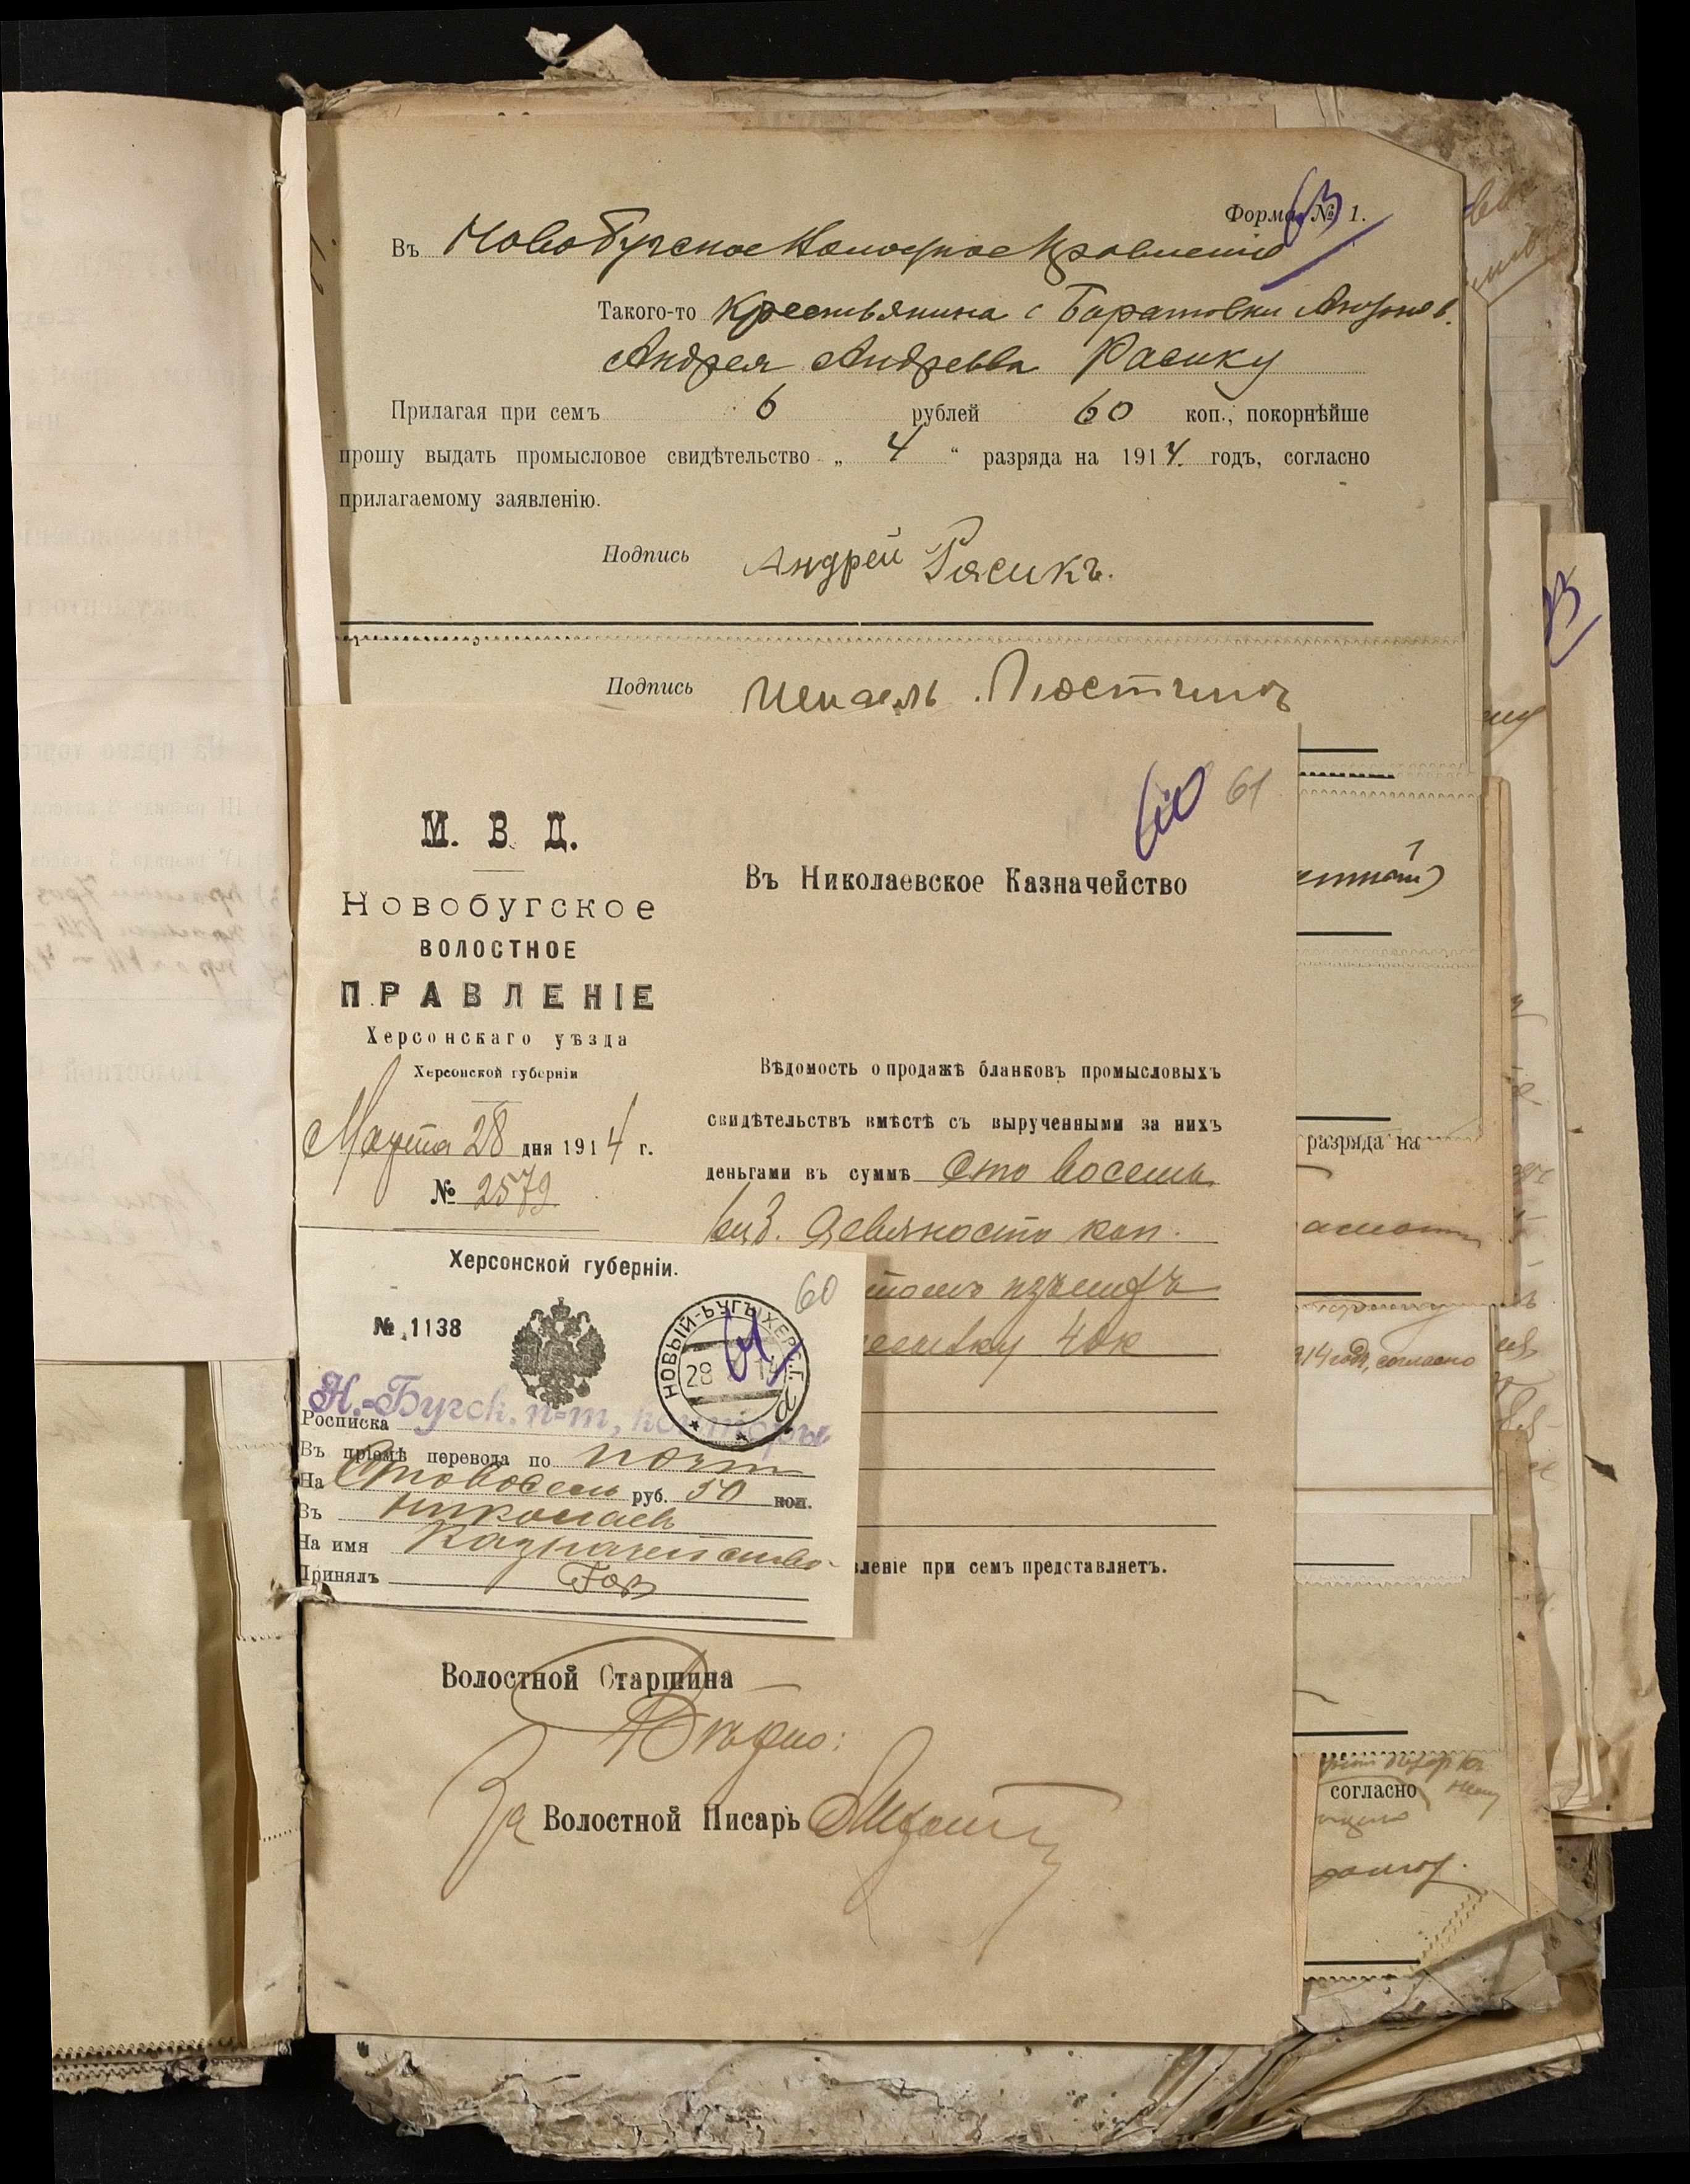 Форма № 1.
63
Въ Новобугское Волостное Правленіе
Такого-то Крестьянина с Баратовки
Андрея Андреева Расику
Прилагая при семъ 6 рублей 60 коп., покорнѣйше
прошу выдать промысловое свидѣтельство „ 4 “ разряда на 1914. годъ, согласно
прилагаемому заявленію.
Подпись Андрей Расикъ.
Подпись
60 61
М. В. Д.
Новобугское
ВОЛОСТНОЕ
ПРАВЛЕНІЕ
Херсонскаго уѣзда
Херсонской губерніи
Марта 28 дня 1914 г.
№ 2579
Въ Николаевское Казначейство
Вѣдомость о продажѣ бланковъ промысловыхъ
свидѣтельствъ вмѣстѣ съ вырученными за нихъ
деньгами въ суммѣ Сто восемь
руб. девяносто коп.
40к
вленіе при семъ представляетъ.
Херсонской губерніи.
60
№ 1138
НОВЫЙ-БУГЪ ХЕРС. Г.
28
61
Н.-Бугск. п-т, конторы
Росписка
Въ пріемѣ перевода по почт
На Сто восемь руб. 50 коп.
Въ Николаевъ
На имя Казначейство
Принялъ
Волостной Старшина
Вѣрно:
За Волостной Писарь
разряда на
914 годъ, согласно
согласно